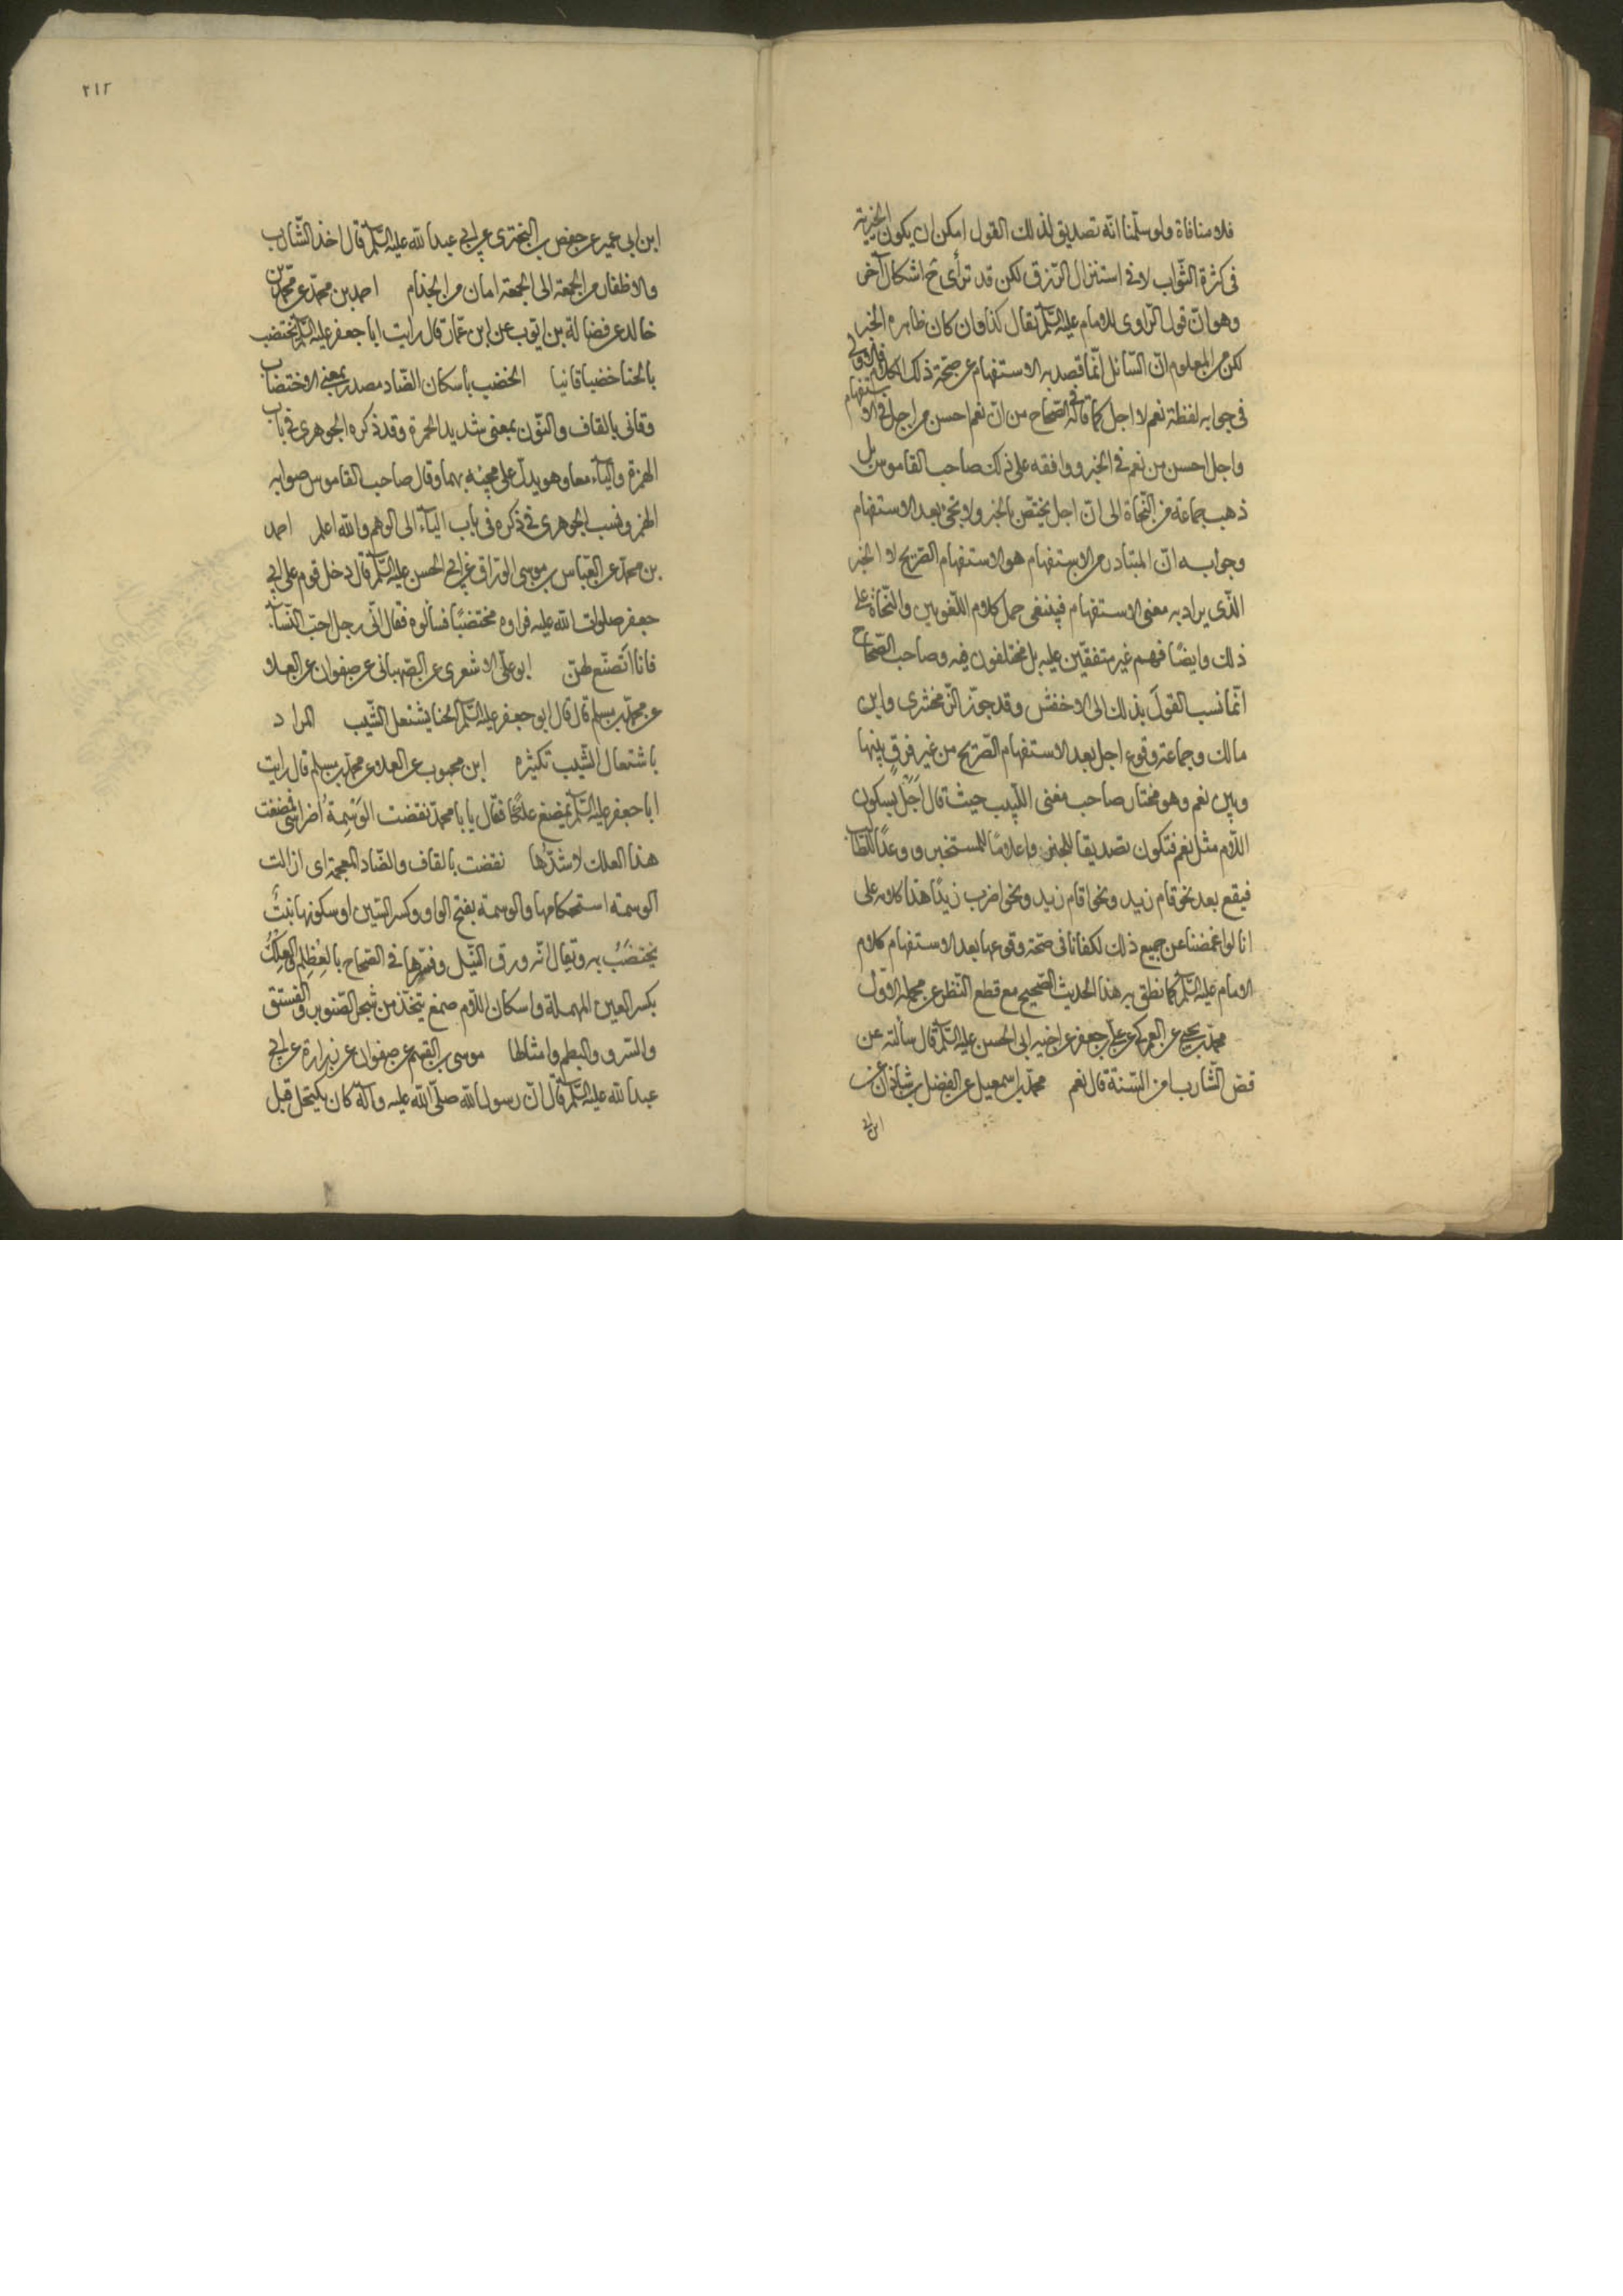 فلا منافاة ولو سلّمنا انّه تصديق لذلك القول امكن ان يكون الخيرية
فى كثرة الثّواب لا فى استنزال الرّزق لكن قد ترأى ح اشكال آخر
وهو انّ قول الرّاوى للامام عليه السّلم يقال كذا وان كان ظاهره الخبر
لكن من المعلوم انّ السّائل انّما قصد به الاستفهام عن صحّة ذلك الكلام فالاولى
فى جوابه لفظة نعم لا اجل كما قاله فى الصّحاح من انّ نعم احسن من اجل فى الاستفهام
واجل احسن من نعم فى الخبر ووافقه على ذلك صاحب القاموس بل
ذهب جماعة من النّحاة الى انّ اجل يختصّ بالخبر ولا تجئ بعد الاستفهام
وجوابه انّ المتبادر من الاستفهام هو الاستفهام الصّريح لا الخبر
الذّى يراد به معنى الاستفهام فينبغى حمل كلام اللّغويين والنّحاة على
ذلك وايضًا فهم غير متفقين عليه بل مختلفون فيه وصاحب الصّحاح
انّما نسب القول بذلك الى الاخفش وقد جوّز الزّمخشرى وابن
مالك وجماعة وقوع اجل بعد الاستفهام الصّريح من غير فرقٍ بينها
وبين نعم وهو مختار صاحب مغنى اللّبيب حيث قال اَجَلْ بسكون
اللّام مثل نعم فتكون تصديقا للمخبر واعلامًا للمستخبر ووعدًا للطّالب
فيقع بعد نحو قام زيد ونحو اقام زيد ونحو اضرب زيدًا هذا كلامه على
انا لو اغمضنا عن جميع ذلك لكفانا فى صحّة وقوعها بعد الاستفهام كلام
الامام عليه السّلم كما نطق به هذا الحديث الصّحيح مع قطع النّظر عن محمله الاوّل
محمّد بن يحيى عن العمركى عن على بن جعفر عن اخيه ابى الحسن عليه السّلم قال سألته عن
قصّ الشّارب امن السّنة قال نعم محمّد بن اسمعيل عن الفضل بن شاذان عن
ابن ابى
٢١٢
ابن ابى عمير عن حفص بن البخترى عن ابى عبد الله عليه السّلم قال اخذ الشّارب
والاظفار من الجمعة الى الجمعة امان من الجذام احمد بن محمّد عن محمّد بن
خالد عن فضالة بن ايّوب عن ابن عمّار قال رايت ابا جعفر عليه السّلم يختضب
بالحنا خضبا قانيا الخضب بأسكان الضّاد مصدر بمعنى الاختضاب
وقانى بالقاف والنّون بمعنى شديد الحمرة وقد ذكره الجوهرى فى باب
الهمزة والياء معا وهو يدلّ على مجيئه بهما وقال صاحب القاموس صوابه
الهمز ونسب الجوهرى فى ذكره فى باب الياء الى الوهم والله اعلم احمد
بن محمّد عن العبّاس بن موسى الورّاق عن ابى الحسن عليه السّلم قال دخل قوم على ابى
جعفر صلوات الله عليه فراوه مختضبًا فسألوه فقال انّى رجل احبّ النّساء
فانا اتصنّع لهنّ ابو على الاشعرى عن الصّهبانى عن صفوان عن العلا
عن محمّد بن مسلم قال قال ابو جعفر عليه السّلم الحنا يشتعل الشّيب المراد
باشتعال الشّيب تكثيره ابن محبوب عن العلا عن محمّد بن مسلم قال رايت
ابا جعفر عليه السّلم يمضغ علكًا فقال يا با محمّد نقضت الوَسْمِةُ اضراسى فمضغت
هذا العلك لاشدّها نقضت بالقاف والضّاد المعجمة اى ازالت
الوسمة استحكامها والوسمة بفتح الواو وكسر السّين او سكونها نبتٌ
يختضبُ به ويقال انّه ورق النّيل وفسّرها فى الصّحاح بالعِظلِم والعِلْكُ
بكسر العين المهملة واسكان اللّام صمغ يتخّذ من شجر الصّنوبر والفستق
والسّرو والبطم وامثالها موسى بن القسم عن صفوان عن زرارة عن ابى
عبد الله عليه السّلم قال انّ رسول الله صلّى الله عليه وآله كان يكتحل قبل